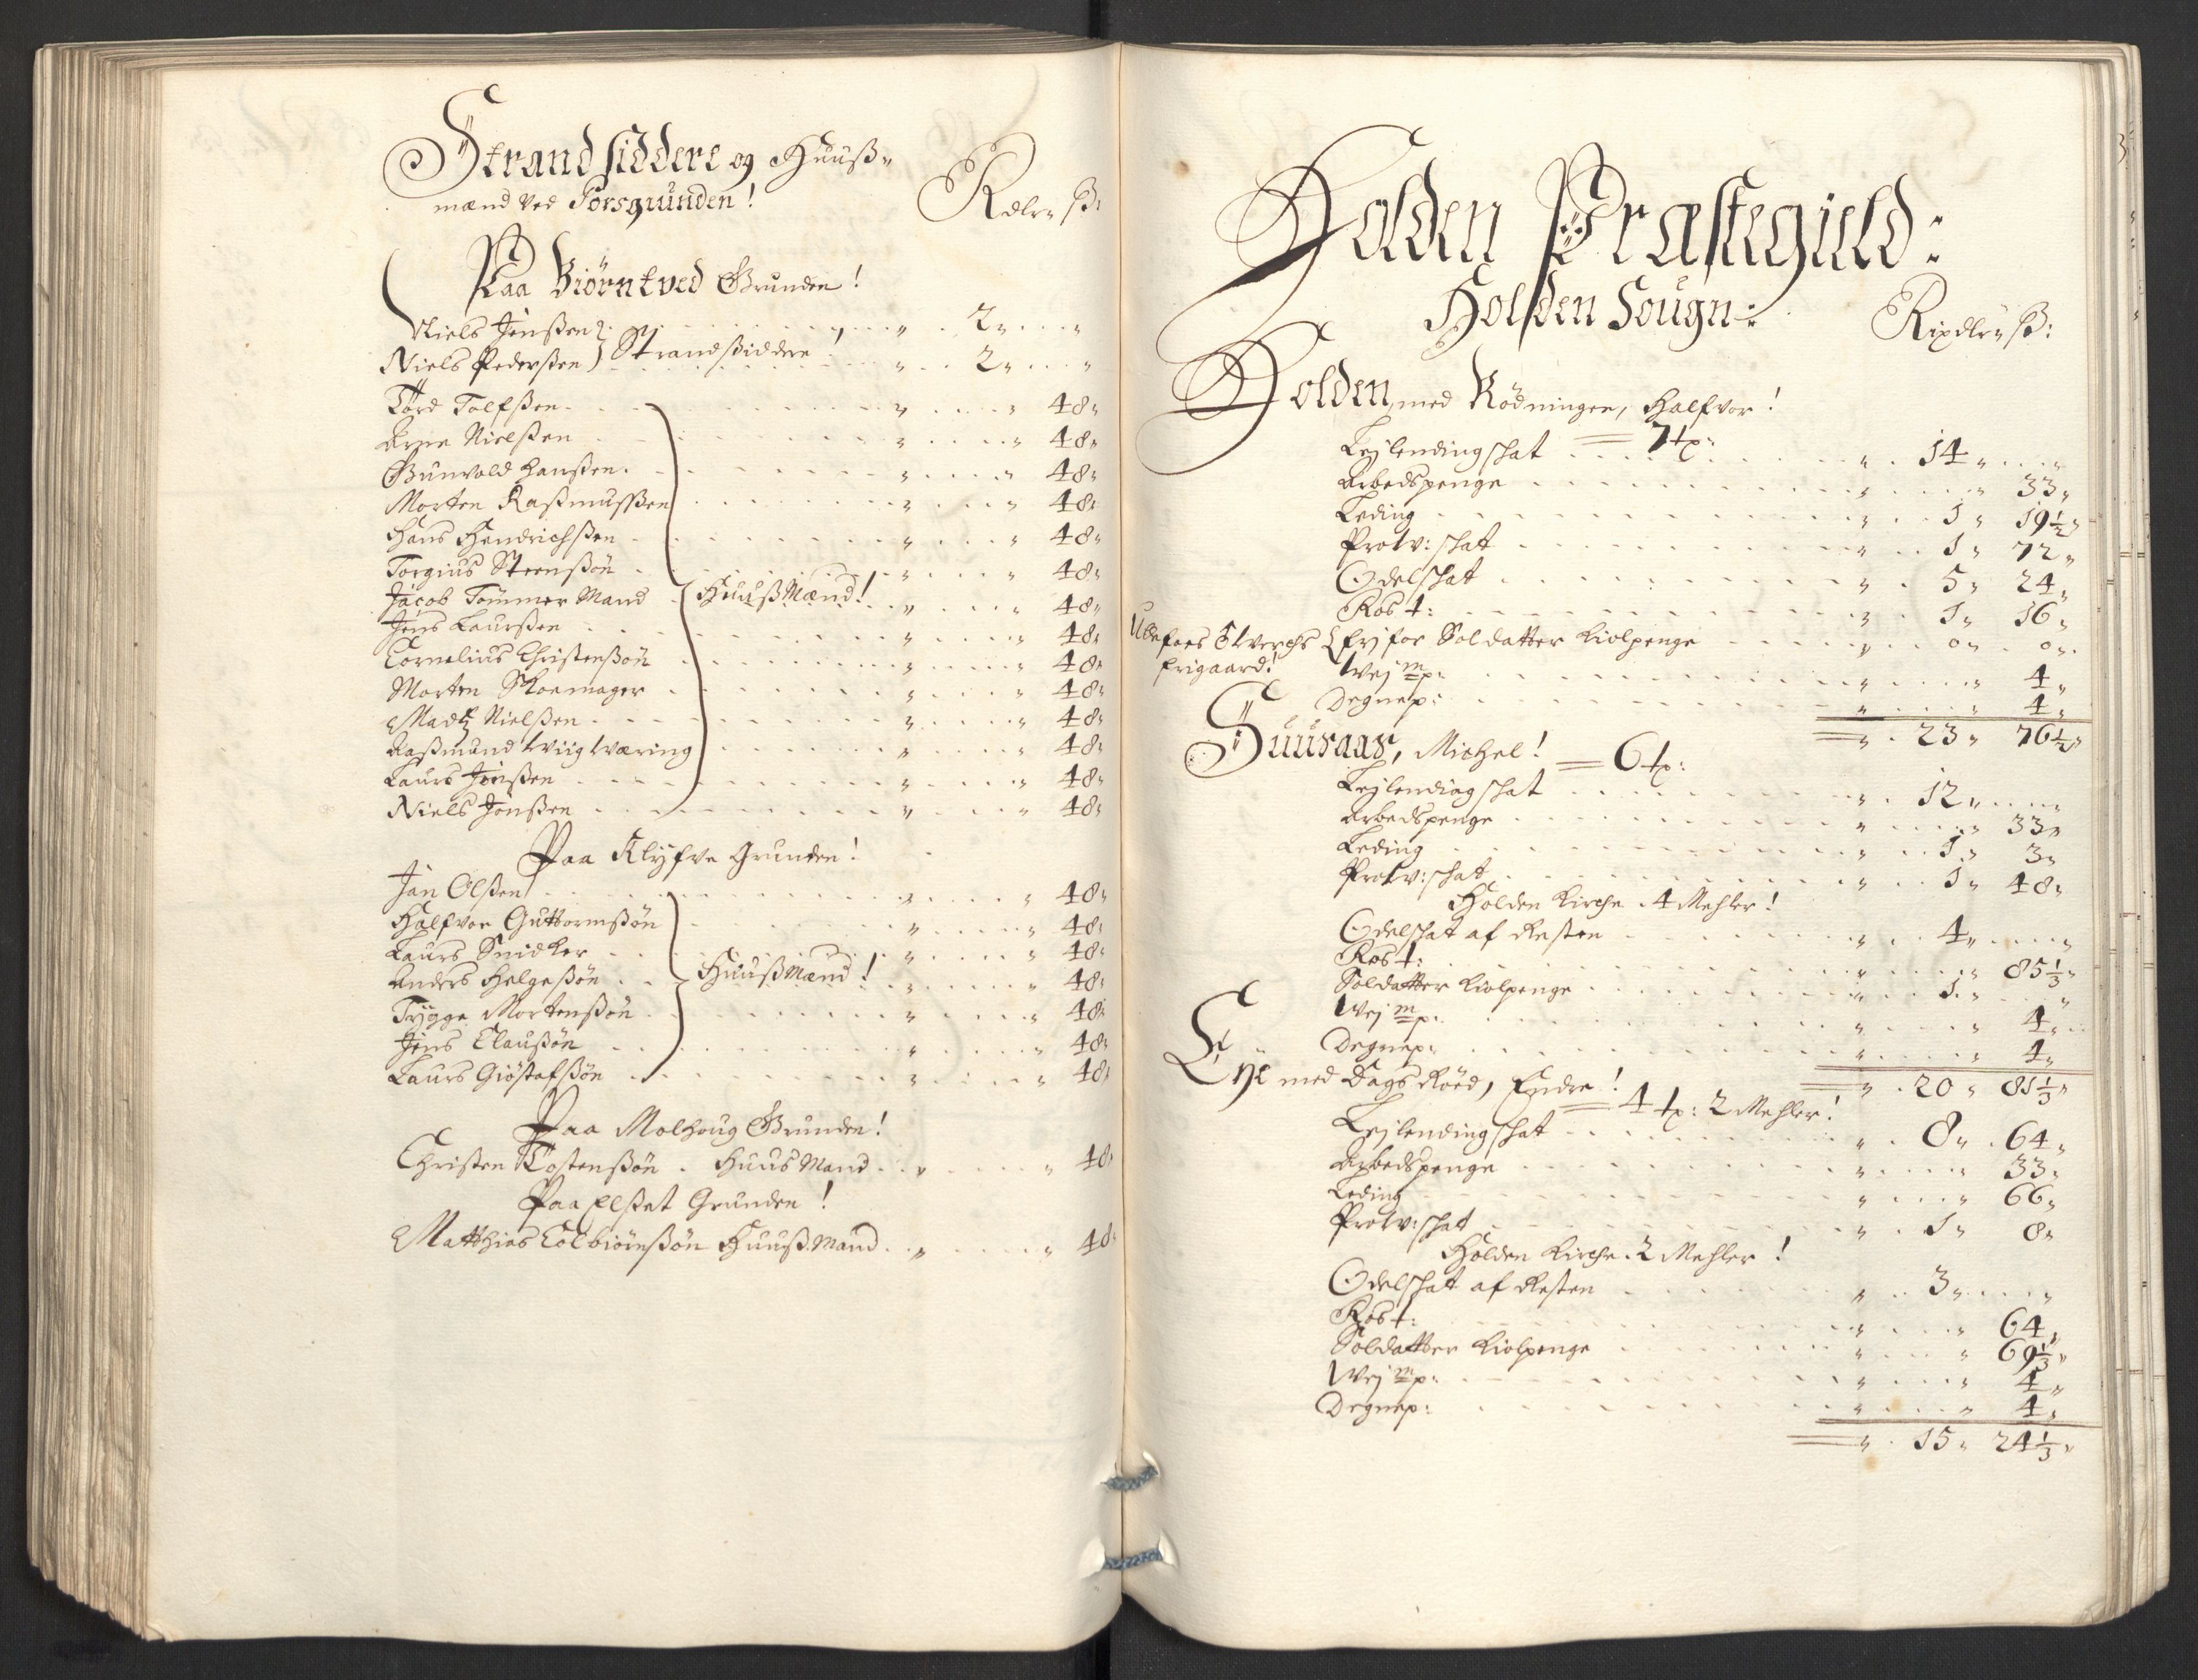 Strandsiddere og Huuß-
mænd ved Porsgrunden!
Rdlr ß:
Paa Biørntved Grunden!
Niels Jenßen 2
Niels Pederßen Strandßiddere! 2
Tord Tolfßen 48
Arne Nielßen 48
Gunvold Hanßen 48
Morten Raßmusßen 48
Hans Hendrichßen 48
Torgius Steenßøn 48
Jacob Tømmer Mand HuußMænd! 48
Jens Laurßen 48
Cornelius Christenßøn 48
Morten Skoemager 48
Madtz Nielßen 48
Raßmund Wiigwæring 48
Laurs Jonßen 48
Niels Jonßen 48
Paa Klyfve Grunden!
Jan Olßen 48
Halfvor Guttormßøn 48
Laurs Snidker 48
Anders Helgeßøn HuußMænd! 48
Trygge Mortenßøn 48
Jens Claußøn 48
Laurs Giøstafßøn 48
Paa Molhoug Grunden!
Christen Tostenßøn. Huus Mand 48
Paa Elßet Grunden!
Matthias Colbiørnßøn Huuß Mand 48
Holden Præstegield:
Holden Sougn:
Rixdlr ß:
Holden med Rødningen, Halfvor!
Lejlendingschat = 7 tp: 14
Arbedspenge 33
Leding 1 19½
Prow:schat 1 72
Odelschat 5 24
Ros t: 1 16
Udefoes Werchs frj for Soldatter Kiolpenge 0 0
frigaard! Wej mp: 4
Degnep: 4
23 76½
Suuraas, Michel! = 6 tp:
Lejlendingschat 12
Arbedspenge 33
Leding 1 3
Prow:schat 1 48
Holden Kirche 4 Mehler!
Odelschat af Resten 4
Ros t: 85⅓
Soldatter Kiolpenge 1
Wej mp: 4
Degnep: 4
20 81⅓
Eye med Dags Røed, Endre!
= 4 tp: 2 Mehler!
Lejlendingschat 8 64
Arbedspenge 33
Leding 66
Prow:schat 1 8
Holden Kirche 2 Mehler!
Odelschat af Resten 3
Ros t: 64
Soldatter Kiolpenge 69⅓
Wej mp: 4
Degnep: 4
15 24⅓